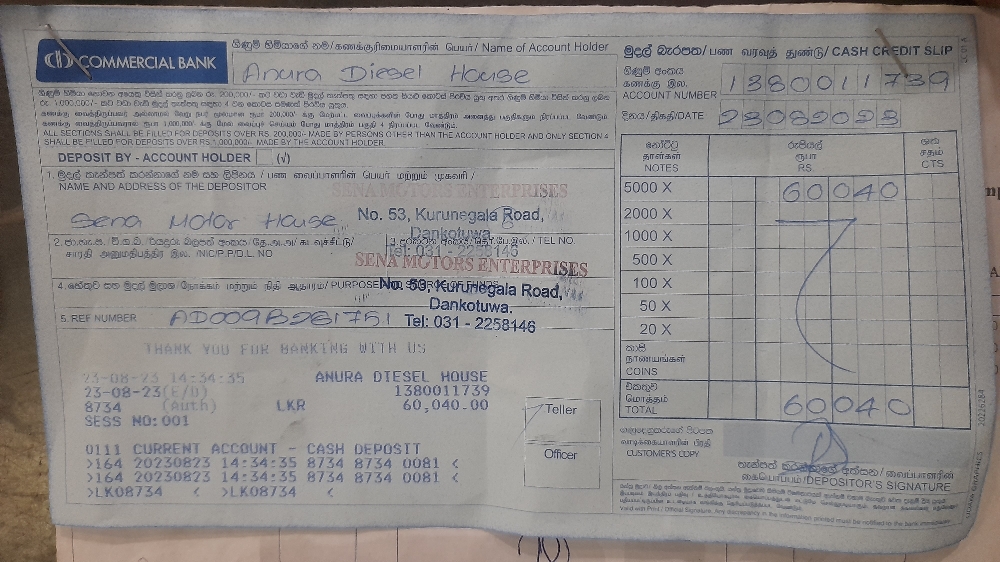 COMMERCIAL BANK
ගිණුම් හිමියාගේ නම/கணக்குரிமையாளரின் பெயர்/ Name of Account Holder
Anura Diesel House
මුදල් බැරපත/பண வரவுத் துண்டு/ CASH CREDIT SLIP
ගිණුම් අංකය
கணக்கு இல.
ACCOUNT NUMBER
1380011739
දිනය/திகதி/DATE
23082023
ALL SECTIONS SHALL BE FILLED FOR DEPOSITS OVER RS. 200,000/- MADE BY PERSONS OTHER THAN THE ACCOUNT HOLDER AND ONLY SECTION 4
SHALL BE FILLED FOR DEPOSITS OVER RS. 1,000,000/- MADE BY THE ACCOUNT HOLDER.
DEPOSIT BY - ACCOUNT HOLDER (√)
NAME AND ADDRESS OF THE DEPOSITOR
Sena Motor House
SENA MOTORS ENTERPRISES
No. 53, Kurunegala Road,
Dankotuwa.
Tel: 031 - 2258146
சாரதி அனுமதிப்பத்திர இல. /NIC/P.P/D.L. NO
/ TEL NO.
SENA MOTORS ENTERPRISES
No. 53, Kurunegala Road,
Dankotuwa.
Tel: 031 - 2258146
5. REF NUMBER
AD009B261751
නෝට්ටු
தாள்கள்
NOTES
රුපියල්
ரூபா
RS.
ශත
சதம்
CTS
5000 X 60040
2000 X
1000 X
500 X
100 X
50 X
20 X
කාසි
நாணயங்கள்
COINS
එකතුව
மொத்தம்
TOTAL 60040
THANK YOU FOR BANKING WITH US
23-08-23 14:34:35 ANURA DIESEL HOUSE
23-08-23(E/D) 1380011739
8734 (Auth) LKR 60,040.00
SESS NO:001
0111 CURRENT ACCOUNT - CASH DEPOSIT
>164 20230823 14:34:35 8734 8734 0081 <
>164 20230823 14:34:35 8734 8734 0081 <
>LK08734 < >LK08734 <
Teller
Officer
வாடிக்கையாளரின் பிரதி
CUSTOMER'S COPY
තැන්පත් කරන්නාගේ අත්සන/வைப்பாளரின்
கையொப்பம்/DEPOSITOR'S SIGNATURE
20226284